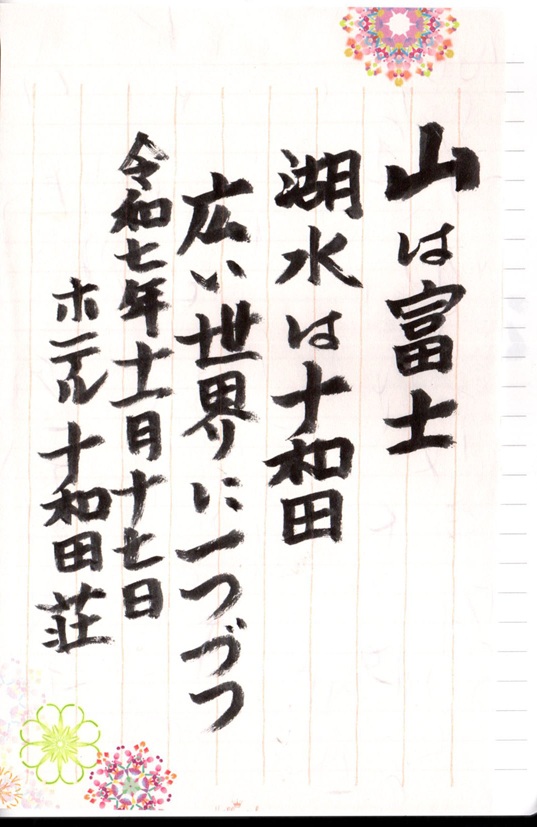 山は富士
湖水は十和田
広い世界に一つづつ
令和七年十一月十七日
ホテル十和田荘